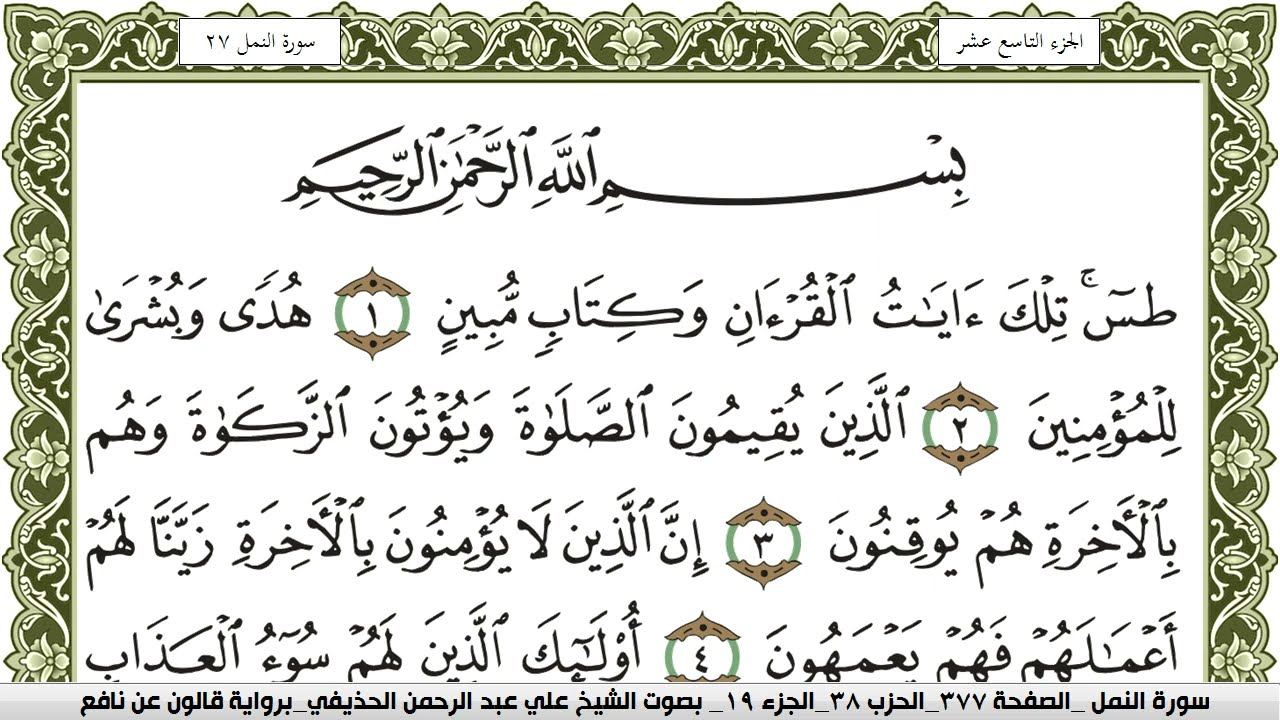 الجزء التاسع عشر
سورة النمل ٢٧
بِسْمِ اللَّهِ الرَّحْمَٰنِ الرَّحِيمِ
طسٓۚ تِلْكَ ءَايَٰتُ اُ۬لْقُرْءَانِ وَكِتَابٖ مُّبِينٍ ١ هُدٗى وَبُشْرَىٰ
لِلْمُؤْمِنِينَ ٢ اَ۬لَّذِينَ يُقِيمُونَ اَ۬لصَّلَوٰةَ وَيُؤْتُونَ اَ۬لزَّكَوٰةَ وَهُم
بِالْأَخِرَةِ هُمْ يُوقِنُونَ ٣ إِنَّ اَ۬لَّذِينَ لَا يُؤْمِنُونَ بِالْأَخِرَةِ زَيَّنَّا لَهُمْ
أَعْمَٰلَهُمْ فَهُمْ يَعْمَهُونَ ٤ أُوْلَٰٓئِكَ اَ۬لَّذِينَ لَهُمْ سُوٓءُ اُ۬لْعَذَابِ
سورة النمل _الصفحة ٣٧٧_الحزب ٣٨_الجزء ١٩_ بصوت الشيخ علي عبد الرحمن الحذيفي_برواية قالون عن نافع